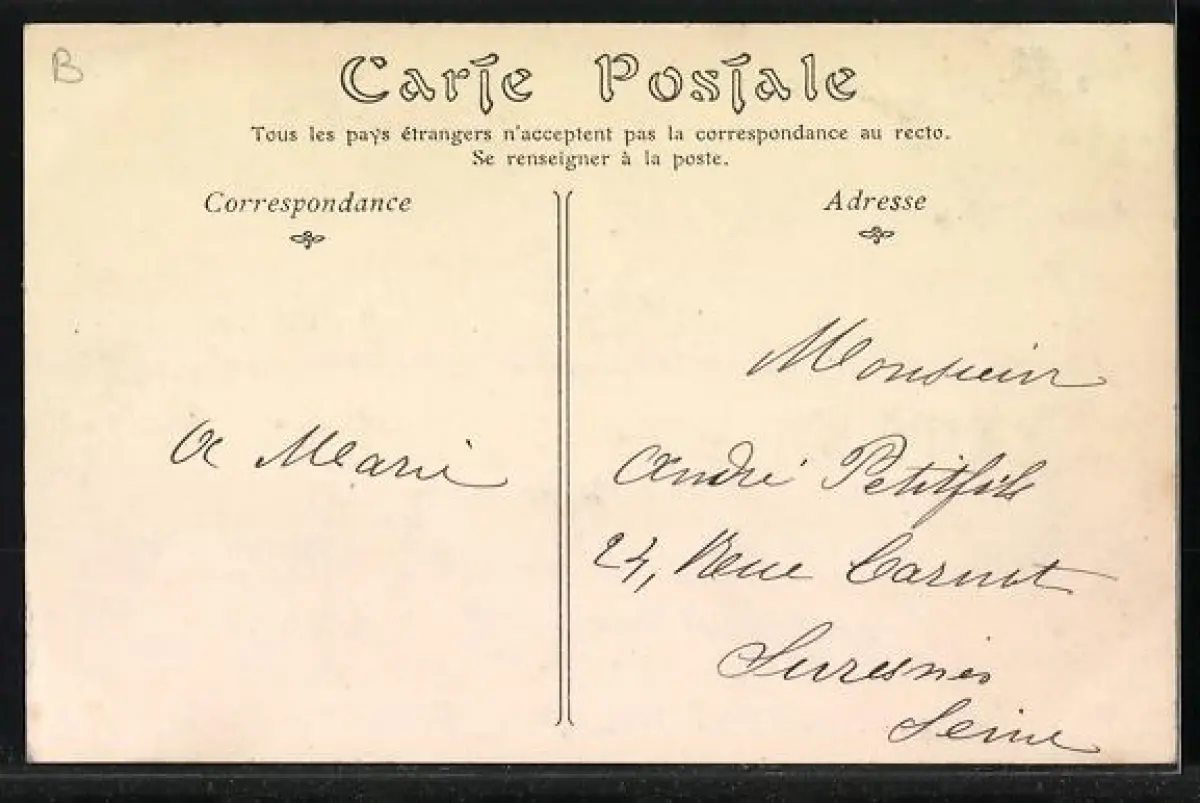 B
Carte Postale
Tous les pays étrangers n'acceptent pas la correspondance au recto.
Se renseigner à la poste.
Correspondance
Adresse
A Marie
Monsieur
André Petitfils
24, Rue Carnot
Suresnes
Seine